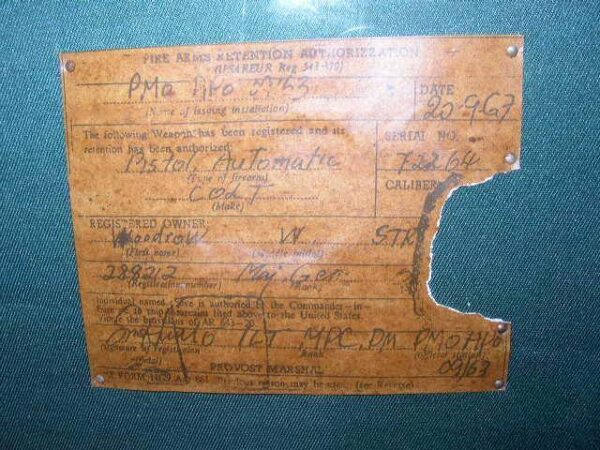 FIRE ARMS RETENTION AUTHORIZZATION
(USAREUR Reg 643-410)
PMO APO
DATE
20-9-67
(Name of issuing installation)
The following Weapon has been registered and its retention has been authorized
SERIAL NO.
Pistol, Automatic
72264
(Type of firearm)
CALIBER
COLT
(Make)
REGISTERED OWNER
Woodrow W. STR
(First name) (Middle initial)
288212 Maj. Gen.
(Registration number) (Rank)
Individual named above is authorized by the Commander-in
to ship firearm listed above to the United States
the provisions of AR 643-
1LT MPC, PMO APO
(Signature of registration Rank
09163
PROVOST MARSHAL
FORM 1029 reason may be used. (see Reverse)